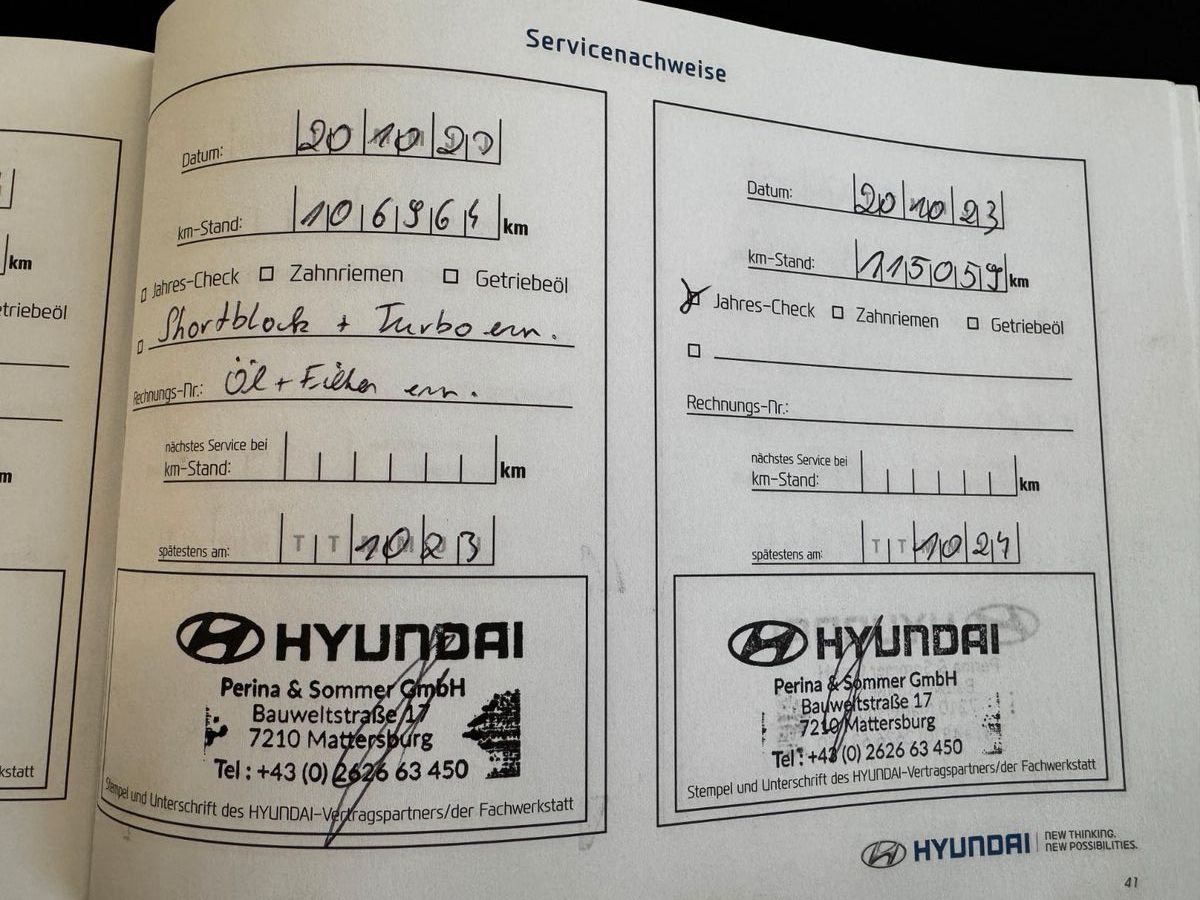 Servicenachweise
Datum: 20 10 22
km-Stand: 106964 km
Jahres-Check Zahnriemen Getriebeöl
Shortblock + Turbo ern.
Rechnungs-Nr.: Öl + Filter ern.
nächstes Service bei
km-Stand: km
spätestens am: T T 10 23
HYUNDAI
Perina & Sommer GmbH
Bauweltstraße 17
7210 Mattersburg
Tel : +43 (0) 2626 63 450
Stempel und Unterschrift des HYUNDAI-Vertragspartners/der Fachwerkstatt
Datum: 20 10 23
km-Stand: 115059 km
Jahres-Check Zahnriemen Getriebeöl
Rechnungs-Nr.:
nächstes Service bei
km-Stand: km
spätestens am: T T 10 24
HYUNDAI
Perina & Sommer GmbH
Bauweltstraße 17
7210 Mattersburg
Tel : +43 (0) 2626 63 450
Stempel und Unterschrift des HYUNDAI-Vertragspartners/der Fachwerkstatt
HYUNDAI NEW THINKING.
NEW POSSIBILITIES.
41
km
etriebeöl
m
kstatt